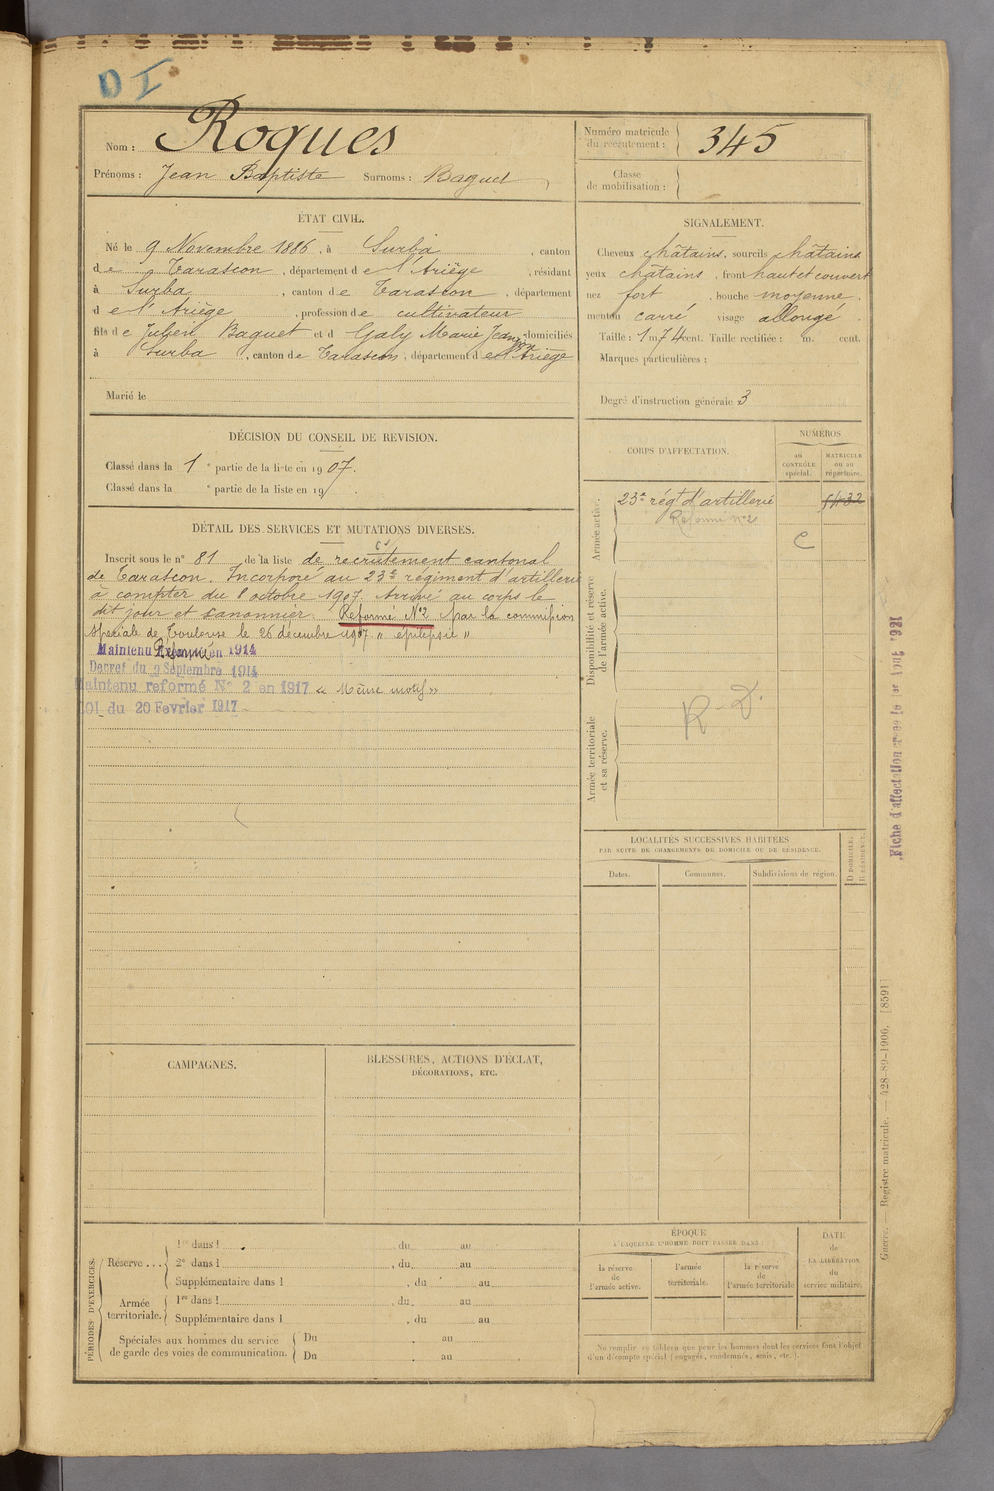 Nom : Roques
Prénoms : Jean Baptiste Surnoms : Baquet
Numéro matricule du recrutement : 345
Classe de mobilisation :
ÉTAT CIVIL.
Né le 9 Novembre 1886, à Surba, canton
de Tarascon, département de l'Ariège, résidant
à Surba, canton de Tarascon, département
de l'Ariège, profession de cultivateur
fils de Julien Baquet et d Galy Marie Jeanne domiciliés
à Surba, canton de Tarascon, département de l'Ariège
Marié le
SIGNALEMENT.
Cheveux châtains, sourcils châtains
yeux châtains, front haut et couvert
nez fort, bouche moyenne,
menton carré visage allongé
Taille : 1 m 74 cent. Taille rectifiée : m. cent.
Marques particulières :
Degré d'instruction générale 3
DÉCISION DU CONSEIL DE REVISION.
Classé dans la 1e partie de la liste en 1907.
Classé dans la e partie de la liste en 19
DÉTAIL DES SERVICES ET MUTATIONS DIVERSES.
Inscrit sous le n° 81 de la liste de recrutement cantonal
de Tarascon. Incorporé au 23e régiment d'artillerie
à compter du 8 octobre 1907. Arrivé au corps le
dit jour et canonnier. Réformé N°2 par la commission
spéciale de Toulouse le 26 décembre 1907 " épilepsie "
Maintenu Réformé en 1914
Decret du 9 Septembre 1914
Maintenu reformé N° 2 en 1917 « Même motif »
LOI du 20 Fevrier 1917
CORPS D'AFFECTATION.
NUMÉROS
au CONTRÔLE spécial.
MATRICULE ou au répertoire.
Armée active.
23e régt d'artillerie
Réformé n°2
C
Disponibilité et réserve de l'armée active.
Armée territoriale et sa réserve.
R-D.
LOCALITÉS SUCCESSIVES HABITÉES
PAR SUITE DE CHANGEMENTS DE DOMICILE OU DE RÉSIDENCE.
Dates.
Communes.
Subdivisions de région.
D DOMICILE.
R RÉSIDENCE.
CAMPAGNES.
BLESSURES, ACTIONS D'ÉCLAT,
DÉCORATIONS, ETC.
PÉRIODES D'EXERCICES.
Réserve ...
1re dans l , du au
2e dans l , du au
Supplémentaire dans l , du au
Armée territoriale.
1re dans l , du au
Supplémentaire dans l , du au
Spéciales aux hommes du service
de garde des voies de communication.
Du au
Du au
ÉPOQUE
À LAQUELLE L'HOMME DOIT PASSER DANS :
la réserve de l'armée active.
l'armée territoriale.
la réserve de l'armée territoriale
DATE de LA LIBÉRATION du service militaire.
Ne remplir ce tableau que pour les hommes dont les services font l'objet
d'un décompte spécial (engagés, condamnés, omis, etc.).
Fiche d'affectation créée le 1er Août 1921
Guerre. — Registre matricule. — 428-89-1906. [8591]